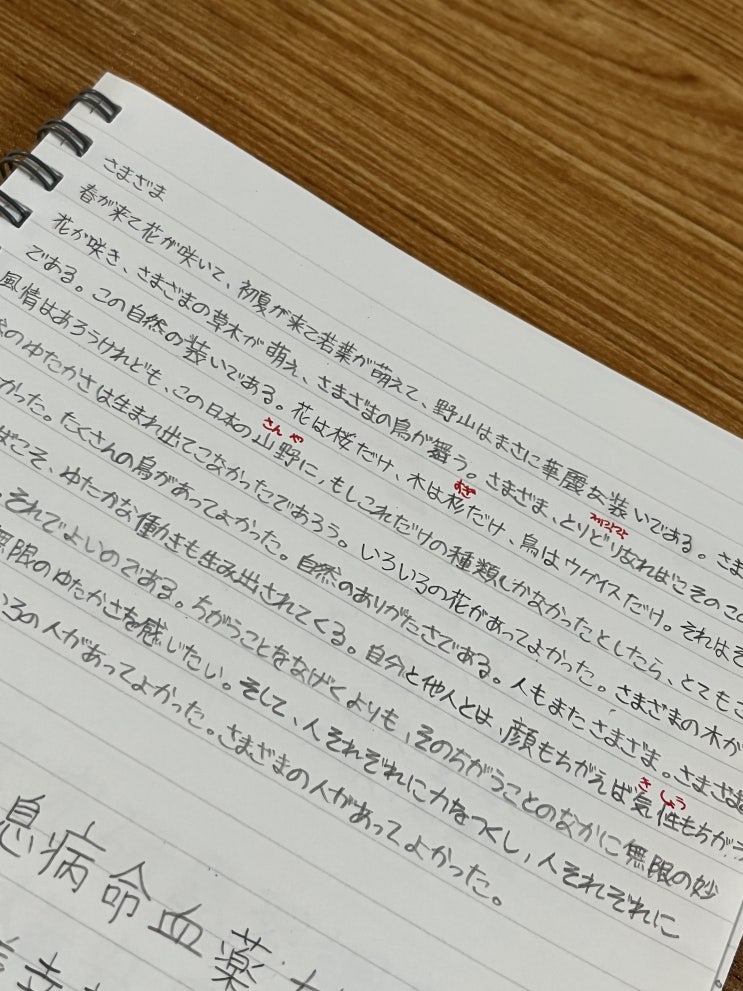 さまざま
春が来て花が咲いて、初夏が来て若葉が萌えて、野山はまさに華麗な装いである。さま
花が咲き、さまざまの草木が萌え、さまざまの鳥が舞う。さまざま、とりどりなればこそのこの
제각각
である。この自然の装いである。花は桜だけ、木は杉だけ、鳥はウグイスだけ。それはそ
すぎ
さんや
風情はあろうけれども、この日本の山野に、もしこれだけの種類しかなかったとしたら、とてもこ
のゆたかさは生まれ出てこなかったであろう。いろいろの花があってよかった。さまざまの木が
かった。たくさんの鳥があってよかった。自然のありがたさである。人もまたさまざま。さまざま
きしょう
ばこそ、ゆたかな働きも生み出されてくる。自分と他人とは、顔もちがえば気性もちがう
。それでよいのである。ちがうことをなげくよりも、そのちがうことのなかに無限の妙
無限のゆたかさを感じたい。そして、人それぞれに力をつくし、人それぞれに
ろの人があってよかった。さまざまの人があってよかった。
息病命血薬
幸